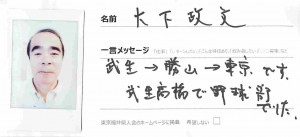 名前 木下政文
一言メッセージ
武生→勝山→東京です。
武生高橋で野球部
でした。
東京福井県人会のホームページに掲載 希望しない